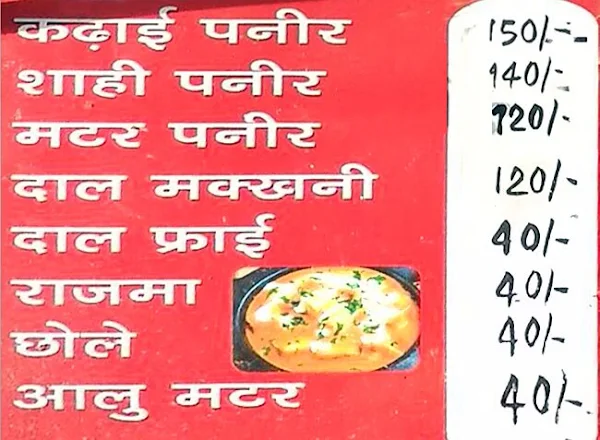 कढ़ाई पनीर 150/-
शाही पनीर 140/-
मटर पनीर 120/-
दाल मक्खनी 120/-
दाल फ्राई 40/-
राजमा 40/-
छोले 40/-
आलु मटर 40/-